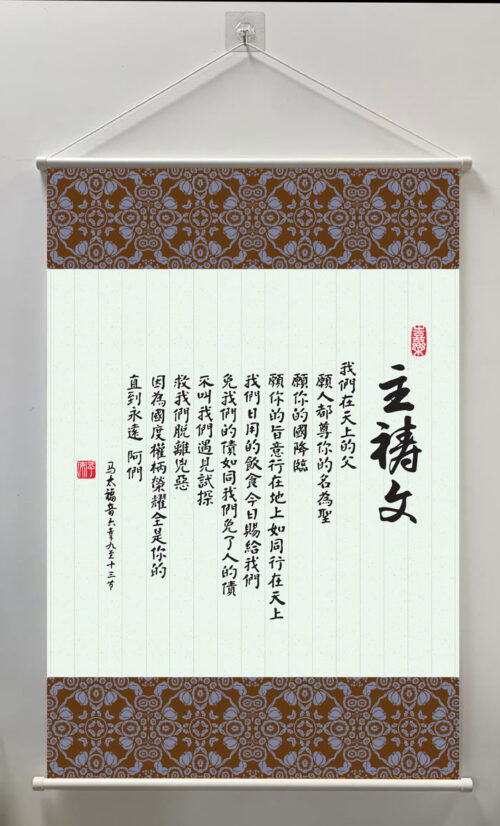 喜樂
主禱文
我們在天上的父
願人都尊你的名為聖
願你的國降臨
願你的旨意行在地上如同行在天上
我們日用的飲食今日賜給我們
免我們的債如同我們免了人的債
不叫我們遇見試探
救我們脫離兇惡
因為國度權柄榮耀全是你的
直到永遠 阿們
马太福音六章九至十三节